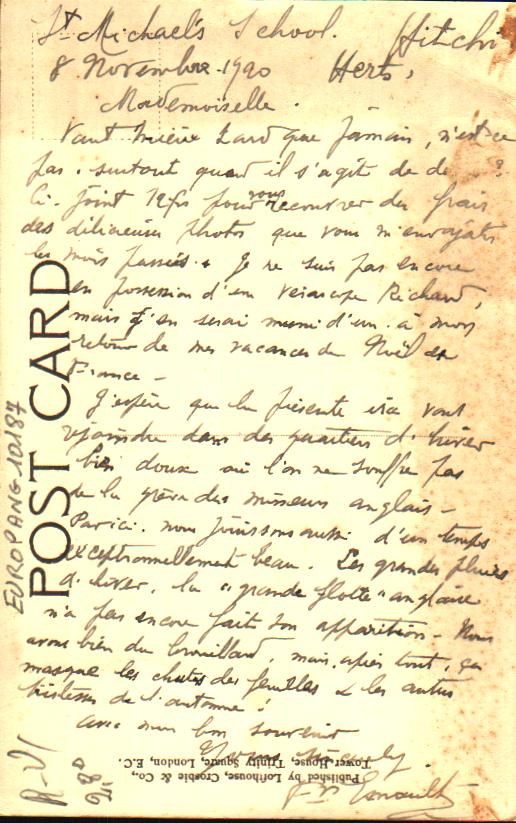 St Michael's School. Hitchi
8 Novembre 1920 Herts,
Mademoiselle.
Vaut mieux tard que jamais, n'est ce
pas. surtout quand il s'agit de de ?
Ci. joint pour vous recouvrer du frais
des délicieuses photos que vous m'envoyâtes
les mois passés. Je ne suis pas encore
en possession d'un verascope Richard,
mais j'en serai muni d'un à mon
retour de mes vacances de Noël en
France -
J'espère que la présente ira vous
rejoindre dans des quartiers d'hiver
bien doux où l'on ne souffre pas
de la grève des mineurs anglais -
Par ici. nous jouissons aussi d'un temps
exceptionnellement beau. Les grandes pluies
d'hiver, la "grande flotte" anglaise
n'a pas encore fait son apparition - Nous
avons bien du brouillard, mais, après tout, ça
masque les chutes des feuilles & les autres
tristesses de l'automne !
Avec mon bon souvenir
Yours sincerely.
POST CARD
EUROPANG 10187
Published by Lofthouse, Crosbie & Co.,
Tower House, Trinity Square, London, E.C.